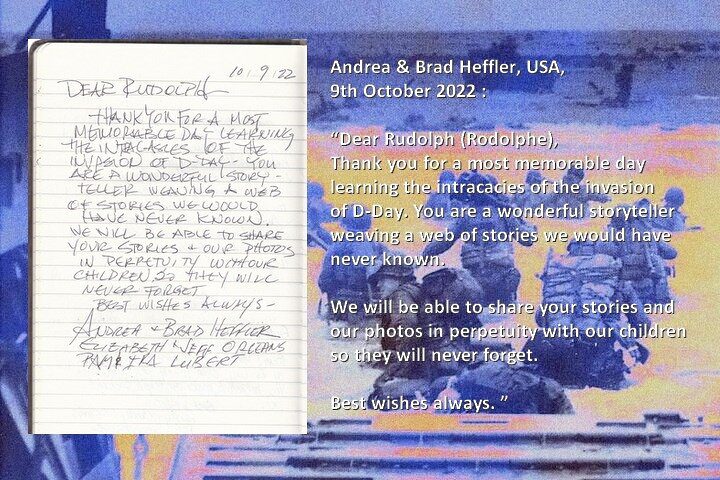 10/9/22
DEAR RUDOLPH
THANK YOU FOR A MOST
MEMORABLE DAY LEARNING
THE INTRACASIES OF THE
INVASION OF D-DAY - YOU
ARE A WONDERFUL STORY-
TELLER WEAVING A WEB
OF STORIES WE WOULD
HAVE NEVER KNOWN.
WE WILL BE ABLE TO SHARE
YOUR STORIES + OUR PHOTOS
IN PERPETUITY WITH OUR
CHILDREN SO THEY WILL
NEVER FORGET
BEST WISHES ALWAYS -
ANDREA + BRAD HEFFLER
ELIZABETH & JEFF ORLEANS
LUBERT
Andrea & Brad Heffler, USA,
9th October 2022 :
“Dear Rudolph (Rodolphe),
Thank you for a most memorable day
learning the intracacies of the invasion
of D-Day. You are a wonderful storyteller
weaving a web of stories we would have
never known.
We will be able to share your stories and
our photos in perpetuity with our children
so they will never forget.
Best wishes always. ”